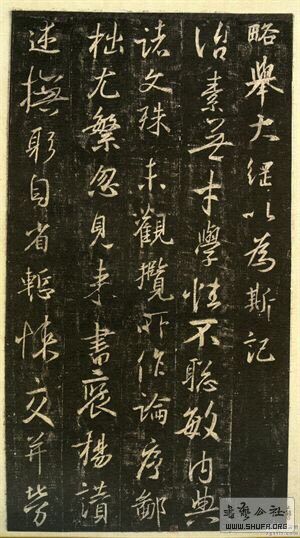 略舉大綱以為斯記
治素無才學性不聰敏內典
諸文殊未觀攬所作論序鄙
拙尤繁忽見來書褒揚讚
述撫躬自省慙悚交并勞
书艺公社
WWW.SHUFA.ORG